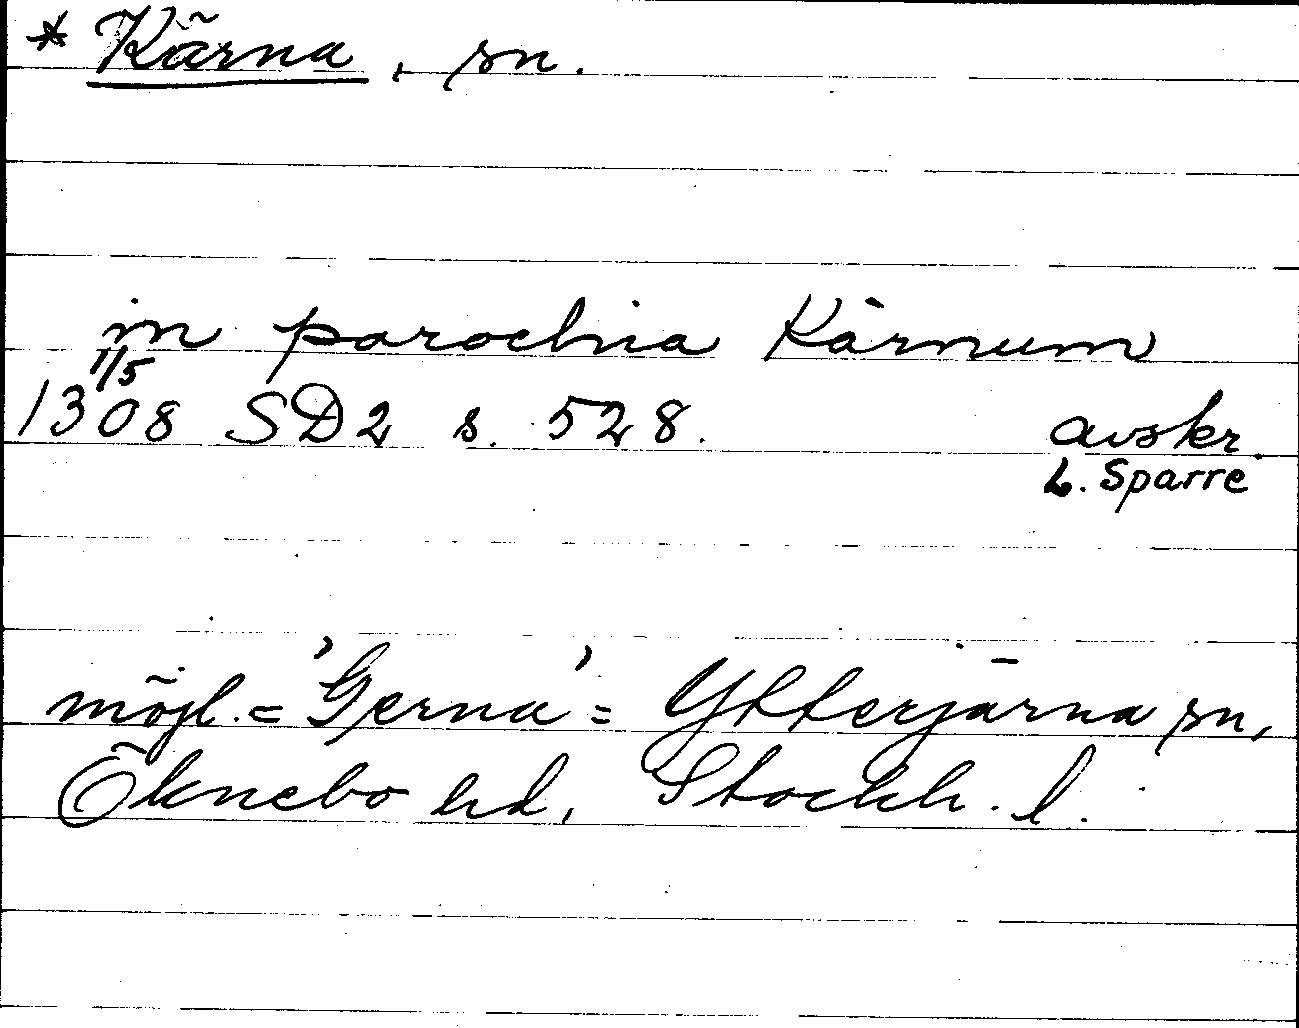 * Kärna, sn.
in parochia Kärnum
1/5
1308 SD2 s. 528.
avskr.
L. Sparre
möjl. = 'Gerna' = Ytterjärna sn,
Öknebo hd, Stockh. l.